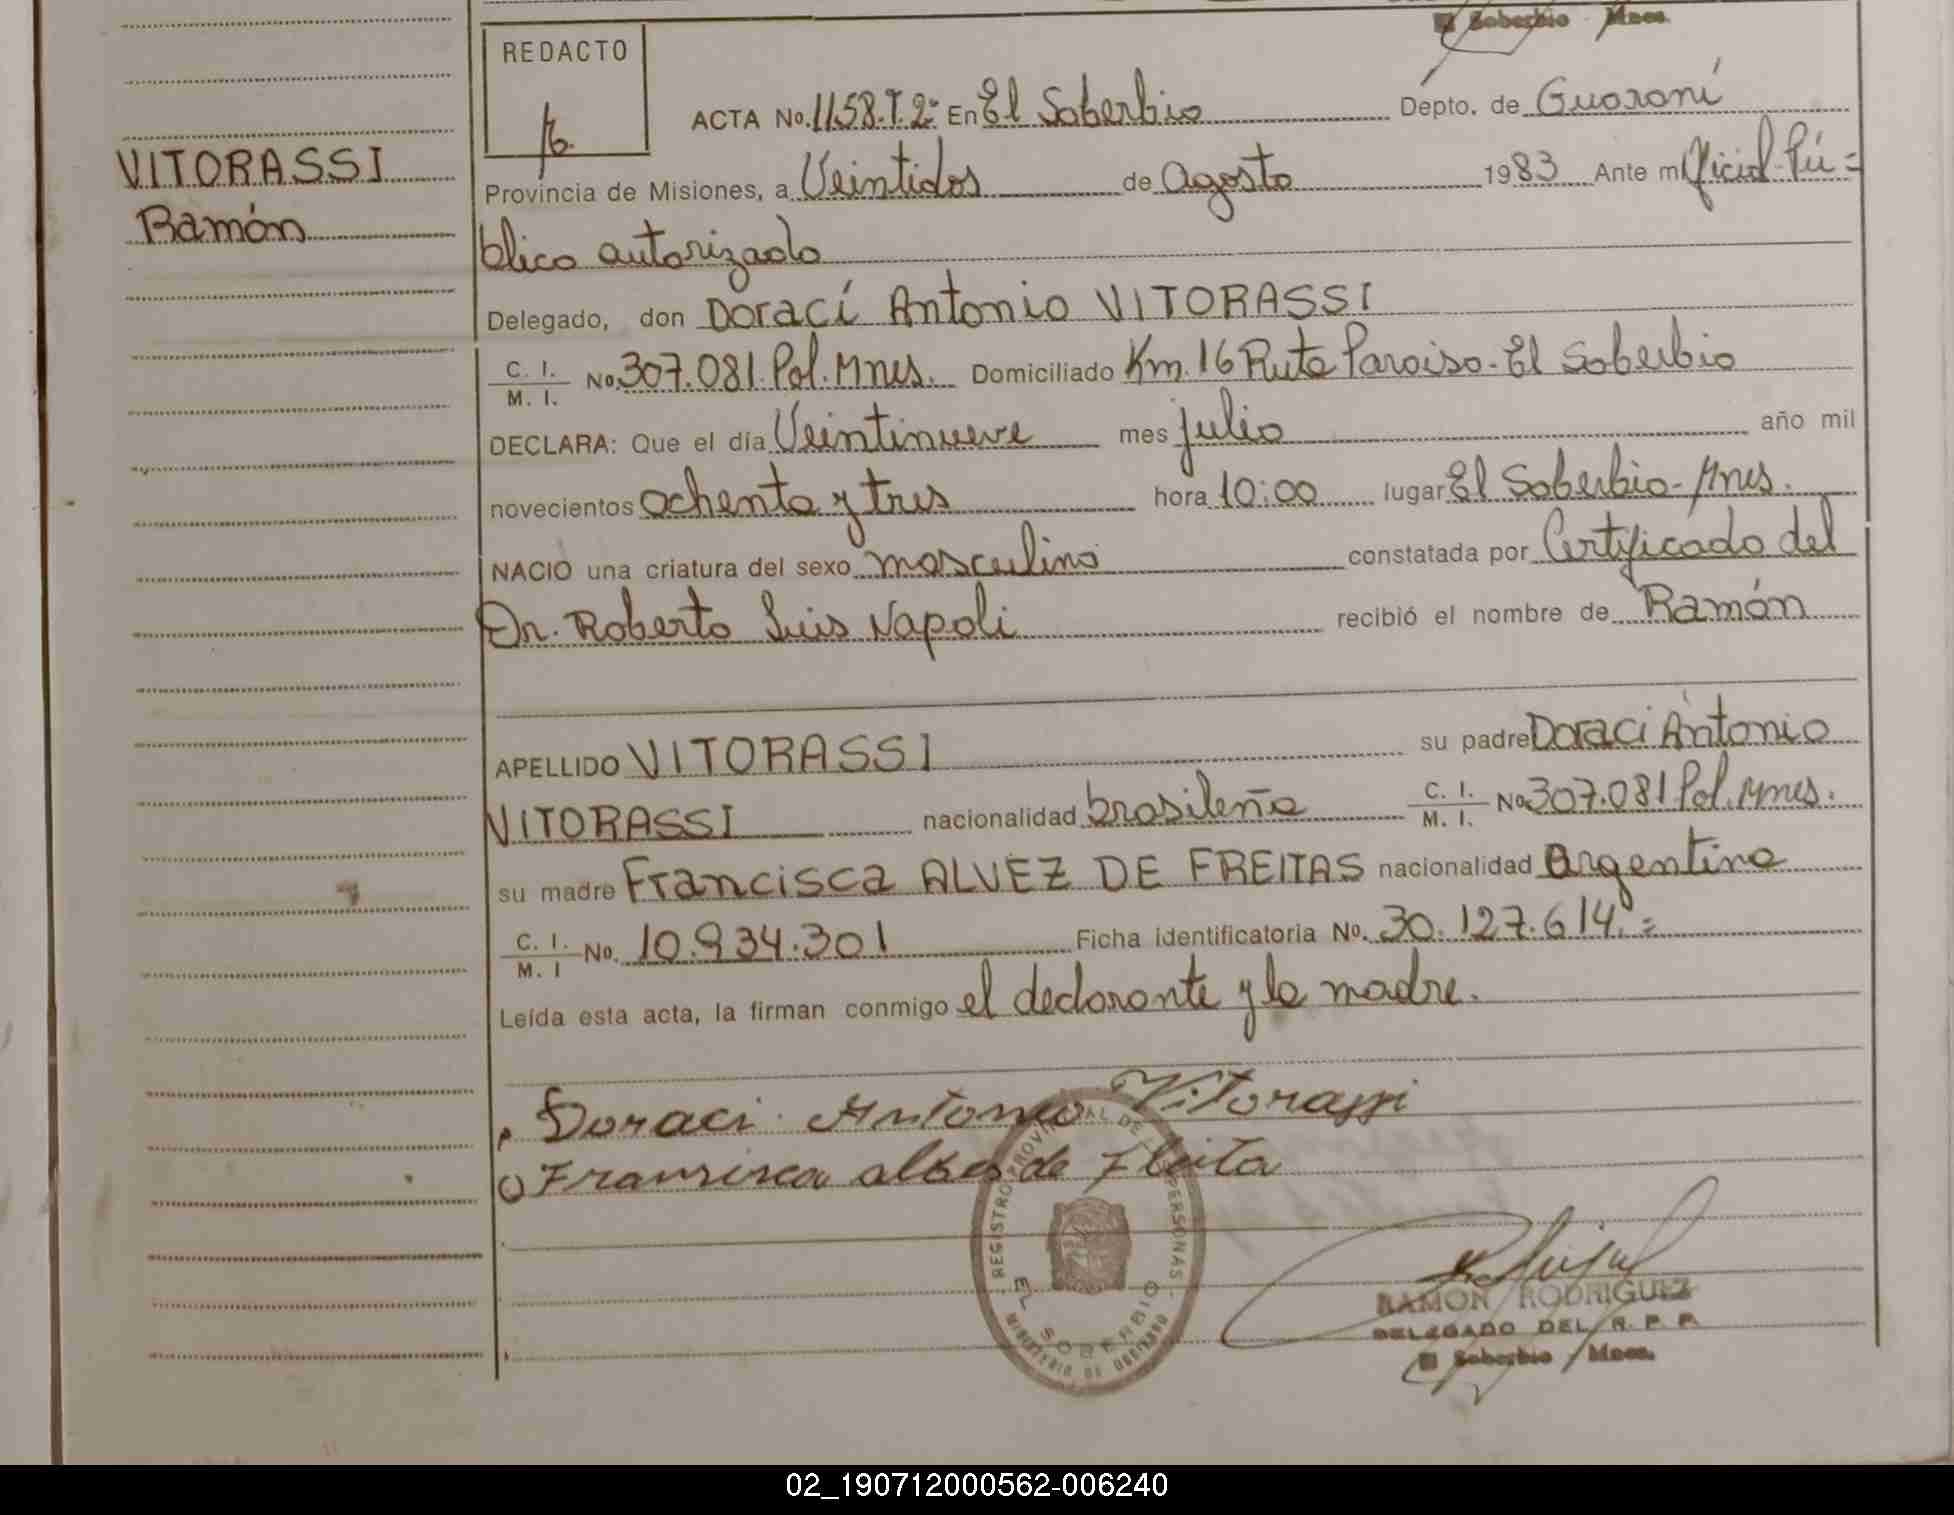 El Soberbio - Mnes.
REDACTO
ACTA No. 1158.T.2º En El Soberbio Depto. de Guaraní
VITORASSI
Ramón
Provincia de Misiones, a Veintidos de Agosto 1983 Ante mi Oficial Pú=
blico autorizado
Delegado, don Doraci Antonio VITORASSI
C. I.
M. I. No. 307.081 Pol. Mnes. Domiciliado Km. 16 Ruta Paraiso - El Soberbio
DECLARA: Que el día Veintinueve mes julio año mil
novecientos ochenta y tres hora 10:00 lugar El Soberbio - Mnes.
NACIO una criatura del sexo masculino constatada por Certificado del
Dr. Roberto Luis Napoli recibió el nombre de Ramón
APELLIDO VITORASSI su padre Doraci Antonio
VITORASSI nacionalidad brasileña C. I. M. I. No. 307.081 Pol. Mnes.
su madre Francisca ALVEZ DE FREITAS nacionalidad Argentina
C. I. M. I No. 10.934.301 Ficha identificatoria No. 30.127.614.=
Leída esta acta, la firman conmigo el declarante y la madre.
Doraci Antonio Vitorassi
Fransisca albes de Fleita
REGISTRO PROVINCIAL DE LAS PERSONAS
EL SOBERBIO
MINISTERIO DE GOBIERNO
RAMON RODRIGUEZ
DELEGADO DEL R. P. P.
El Soberbio - Mnes.
02_190712000562-006240